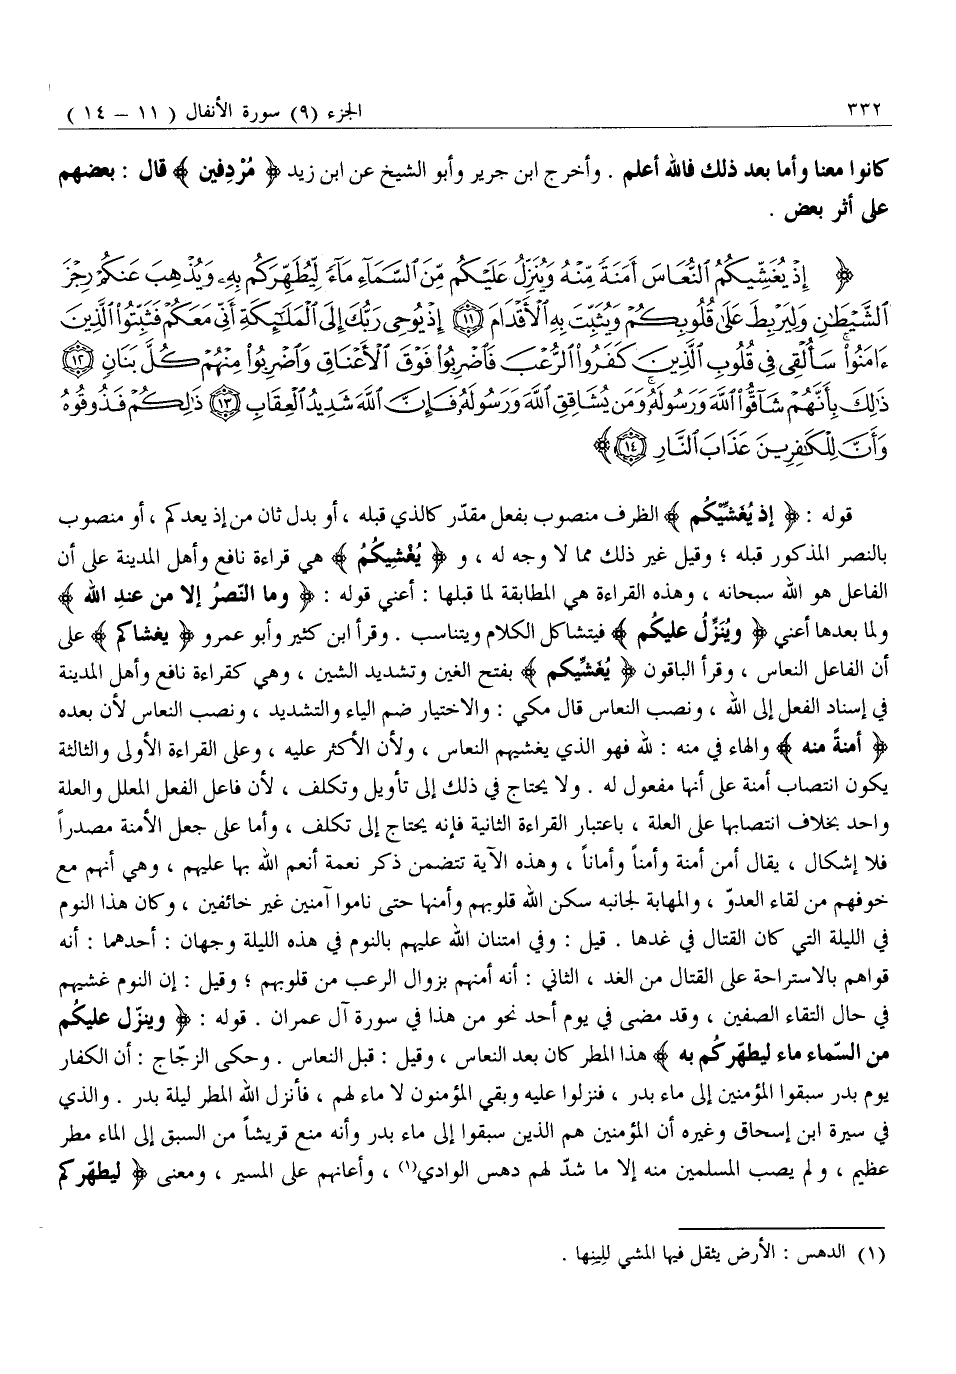 ٣٣٢ الجزء (٩) سورة الأنفال ( ١١ – ١٤ )
كانوا معنا وأما بعد ذلك فالله أعلم . وأخرج ابن جرير وأبو الشيخ عن ابن زيد ﴿ مُرْدِفين ﴾ قال : بعضهم
على أثر بعض .
﴿ إِذْ يُغَشِّيكُمُ ٱلنُّعَاسَ أَمَنَةً مِّنْهُ وَيُنَزِّلُ عَلَيْكُم مِّنَ ٱلسَّمَآءِ مَآءً لِّيُطَهِّرَكُم بِهِۦ وَيُذْهِبَ عَنكُمْ رِجْزَ
ٱلشَّيْطَٰنِ وَلِيَرْبِطَ عَلَىٰ قُلُوبِكُمْ وَيُثَبِّتَ بِهِ ٱلْأَقْدَامَ ١١ إِذْ يُوحِى رَبُّكَ إِلَى ٱلْمَلَٰٓئِكَةِ أَنِّى مَعَكُمْ فَثَبِّتُوا۟ ٱلَّذِينَ
ءَامَنُوا۟ۚ سَأُلْقِى فِى قُلُوبِ ٱلَّذِينَ كَفَرُوا۟ ٱلرُّعْبَ فَٱضْرِبُوا۟ فَوْقَ ٱلْأَعْنَاقِ وَٱضْرِبُوا۟ مِنْهُمْ كُلَّ بَنَانٍ ١٢
ذَٰلِكَ بِأَنَّهُمْ شَآقُّوا۟ ٱللَّهَ وَرَسُولَهُۥۚ وَمَن يُشَاقِقِ ٱللَّهَ وَرَسُولَهُۥ فَإِنَّ ٱللَّهَ شَدِيدُ ٱلْعِقَابِ ١٣ ذَٰلِكُمْ فَذُوقُوهُ
وَأَنَّ لِلْكَٰفِرِينَ عَذَابَ ٱلنَّارِ ١٤ ﴾
قوله : ﴿ إذ يُغَشِّيكُم ﴾ الظرف منصوب بفعل مقدّر كالذي قبله ، أو بدل ثان من إذ يعدكم ، أو منصوب
بالنصر المذكور قبله ؛ وقيل غير ذلك مما لا وجه له ، و ﴿ يُغْشِيكُمُ ﴾ هي قراءة نافع وأهل المدينة على أن
الفاعل هو الله سبحانه ، وهذه القراءة هي المطابقة لما قبلها : أعني قوله : ﴿ وما النّصرُ إلا من عندِ الله ﴾
ولما بعدها أعني ﴿ ويُنَزِّلُ عليكم ﴾ فيتشاكل الكلام ويتناسب . وقرأ ابن كثير وأبو عمرو ﴿ يغشاكم ﴾ على
أن الفاعل النعاس ، وقرأ الباقون ﴿ يُغَشِّيكم ﴾ بفتح الغين وتشديد الشين ، وهي كقراءة نافع وأهل المدينة
في إسناد الفعل إلى الله ، ونصب النعاس قال مكي : والاختيار ضم الياء والتشديد ، ونصب النعاس لأن بعده
﴿ أمنةً منه ﴾ والهاء في منه : لله فهو الذي يغشيهم النعاس ، ولأن الأكثر عليه ، وعلى القراءة الأولى والثالثة
يكون انتصاب أمنة على أنها مفعول له . ولا يحتاج في ذلك إلى تأويل وتكلف ، لأن فاعل الفعل المعلل والعلة
واحد بخلاف انتصابها على العلة ، باعتبار القراءة الثانية فإنه يحتاج إلى تكلف ، وأما على جعل الأمنة مصدراً
فلا إشكال ، يقال أمن أمنة وأمناً وأماناً ، وهذه الآية تتضمن ذكر نعمة أنعم الله بها عليهم ، وهي أنهم مع
خوفهم من لقاء العدوّ ، والمهابة لجانبه سكن الله قلوبهم وأمنها حتى ناموا آمنين غير خائفين ، وكان هذا النوم
في الليلة التي كان القتال في غدها . قيل : وفي امتنان الله عليهم بالنوم في هذه الليلة وجهان : أحدهما : أنه
قواهم بالاستراحة على القتال من الغد ، الثاني : أنه أمنهم بزوال الرعب من قلوبهم ؛ وقيل : إن النوم غشيهم
في حال التقاء الصفين ، وقد مضى في يوم أحد نحو من هذا في سورة آل عمران . قوله : ﴿ وينزّل عليكُم
من السّماء ماء ليطهّركُم به ﴾ هذا المطر كان بعد النعاس ، وقيل : قبل النعاس . وحكى الزجّاج : أن الكفار
يوم بدر سبقوا المؤمنين إلى ماء بدر ، فنزلوا عليه وبقي المؤمنون لا ماء لهم ، فأنزل الله المطر ليلة بدر . والذي
في سيرة ابن إسحاق وغيره أن المؤمنين هم الذين سبقوا إلى ماء بدر وأنه منع قريشاً من السبق إلى الماء مطر
عظيم ، ولم يصب المسلمين منه إلا ما شدّ لهم دهس الوادي(١) ، وأعانهم على المسير ، ومعنى ﴿ ليطهّركم
(١) الدهس : الأرض يثقل فيها المشي للِينِها .